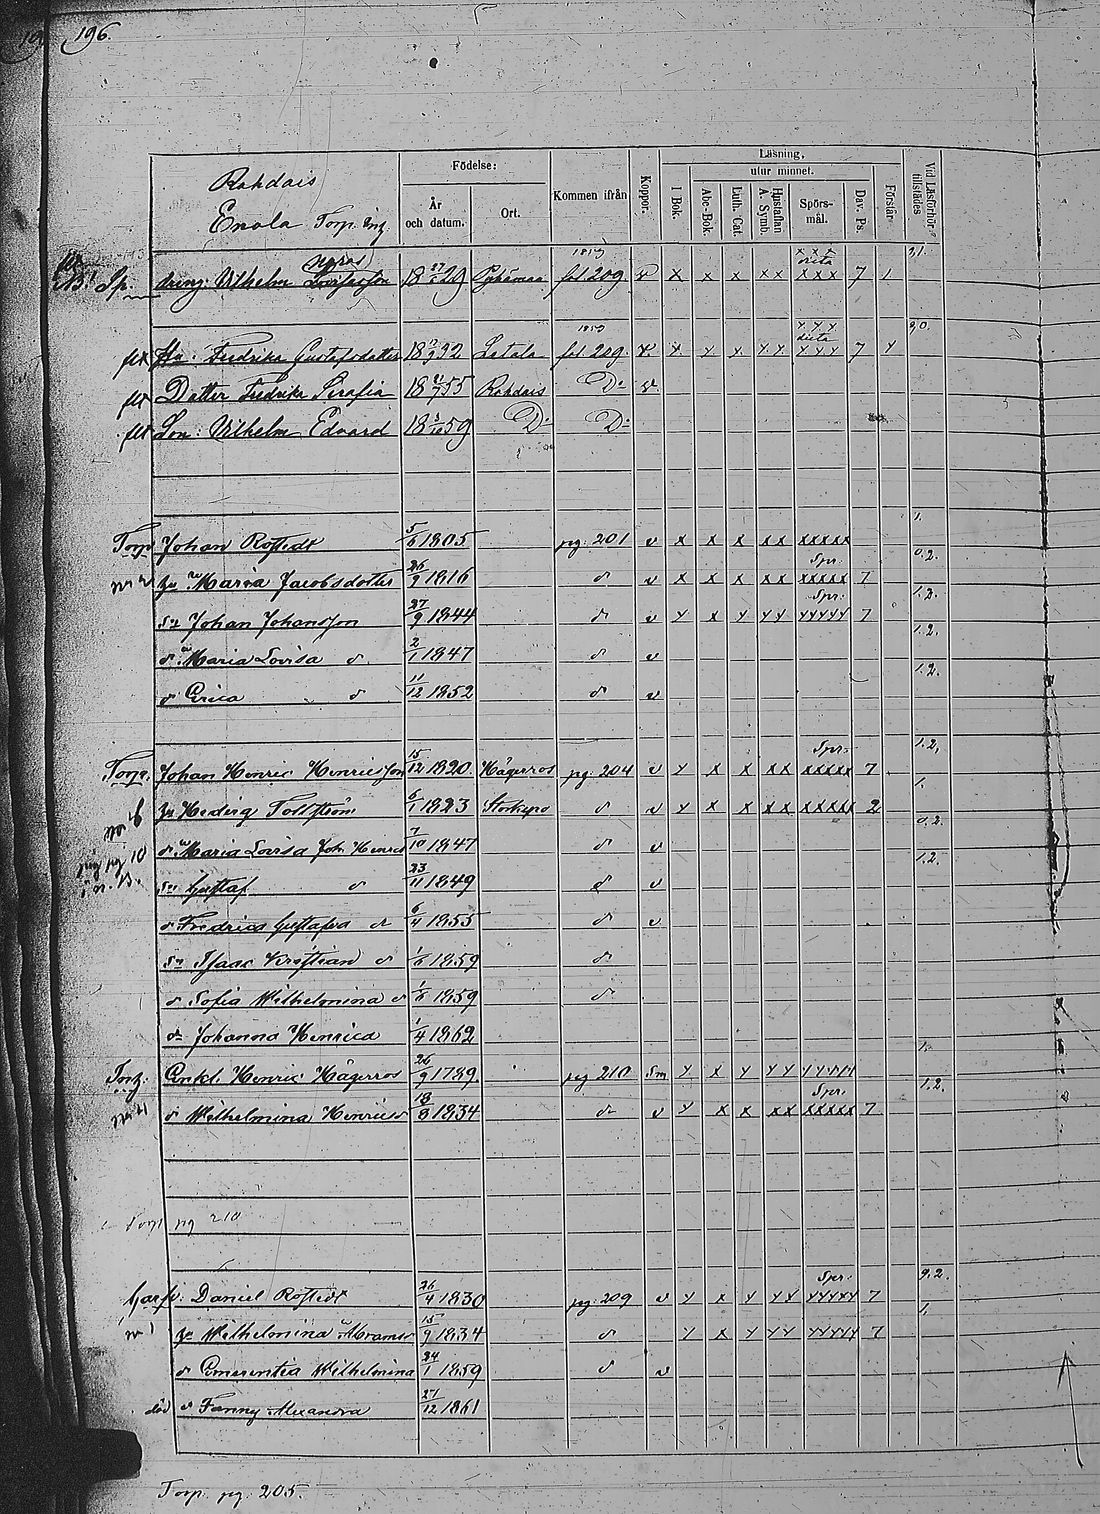 196.
Rahdais
Enola Torp. äng.
Födelse:
År och datum.
Ort.
Kommen ifrån
Koppor.
Läsning,
utur minnet.
I Bok.
Abc-Bok.
Luth. Cat.
Hustaflan A. Symb.
Spörs-mål.
Dav. Ps.
Förstår
Vid Läsförhör. tillstädes
Sp. dräng: Vilhelm Gustafsson 18 29 1859 fol 209. v x x x x x x x x 7 1
flt Hu. Fredrika Gustafsdotter 18 32 Letala 1859 fol 209. v x x x x x x x x 7 x
flt Dotter Fredrika Serafia 18 55 Rahdais D:o v
flt Son: Vilhelm Edvard 18 59 D:o D:o
Torp Johan Rostedt 5/6 1805 pg. 201 v x x x x x xxxxx 1.
hu Maria Jacobsdotter 26/9 1816 d v x x x x x Spr. xxxxx 7 0.2.
sn Johan Johansson 27/9 1844 d v x x x x x Spr. xxxxx 7 1.2.
d Maria Lovisa d. 2/1 1847 d v 1.2.
d Erica d 11/12 1852 d v 1.2.
Torp. Johan Henric Henricsson 15/12 1820 Hägerros pg. 204 v x x x x x Spr. xxxxx 7 1.2.
hu Hedvig 6/1 1823 d v x x x x x xxxxx 2 1.
d Maria Lovisa Joh. Henrics 7/10 1847 d v 0.2.
sn Gustaf d 23/11 1849 d v 1.2.
d Fredrica Gustafva d 6/4 1855 d v
sn Isaac Kristian d 1/6 1859 d
d Sofia Wilhelmina d 1/6 1859 d
d Johanna Henrica 1/4 1862
Torp. Enkl. Henric Hägerros 26/9 1789 pg 210 Sm x x x x x xxxxx 1.
d Wilhelmina Henrics 18/8 1834 d v x x x x x Spr. xxxxx 7 1.2.
Torp pg 210
Daniel Rostedt 26/4 1830 pg: 209 v x x x x x Spr. xxxxx 7 9.2.
hu Wilhelmina 15/9 1834 d x x x x x xxxxx 7 1.
d Emerentia Wilhelmina 24/1 1859 d v
död d Fanny Alexandra 27/12 1861
Torp. pg. 205.